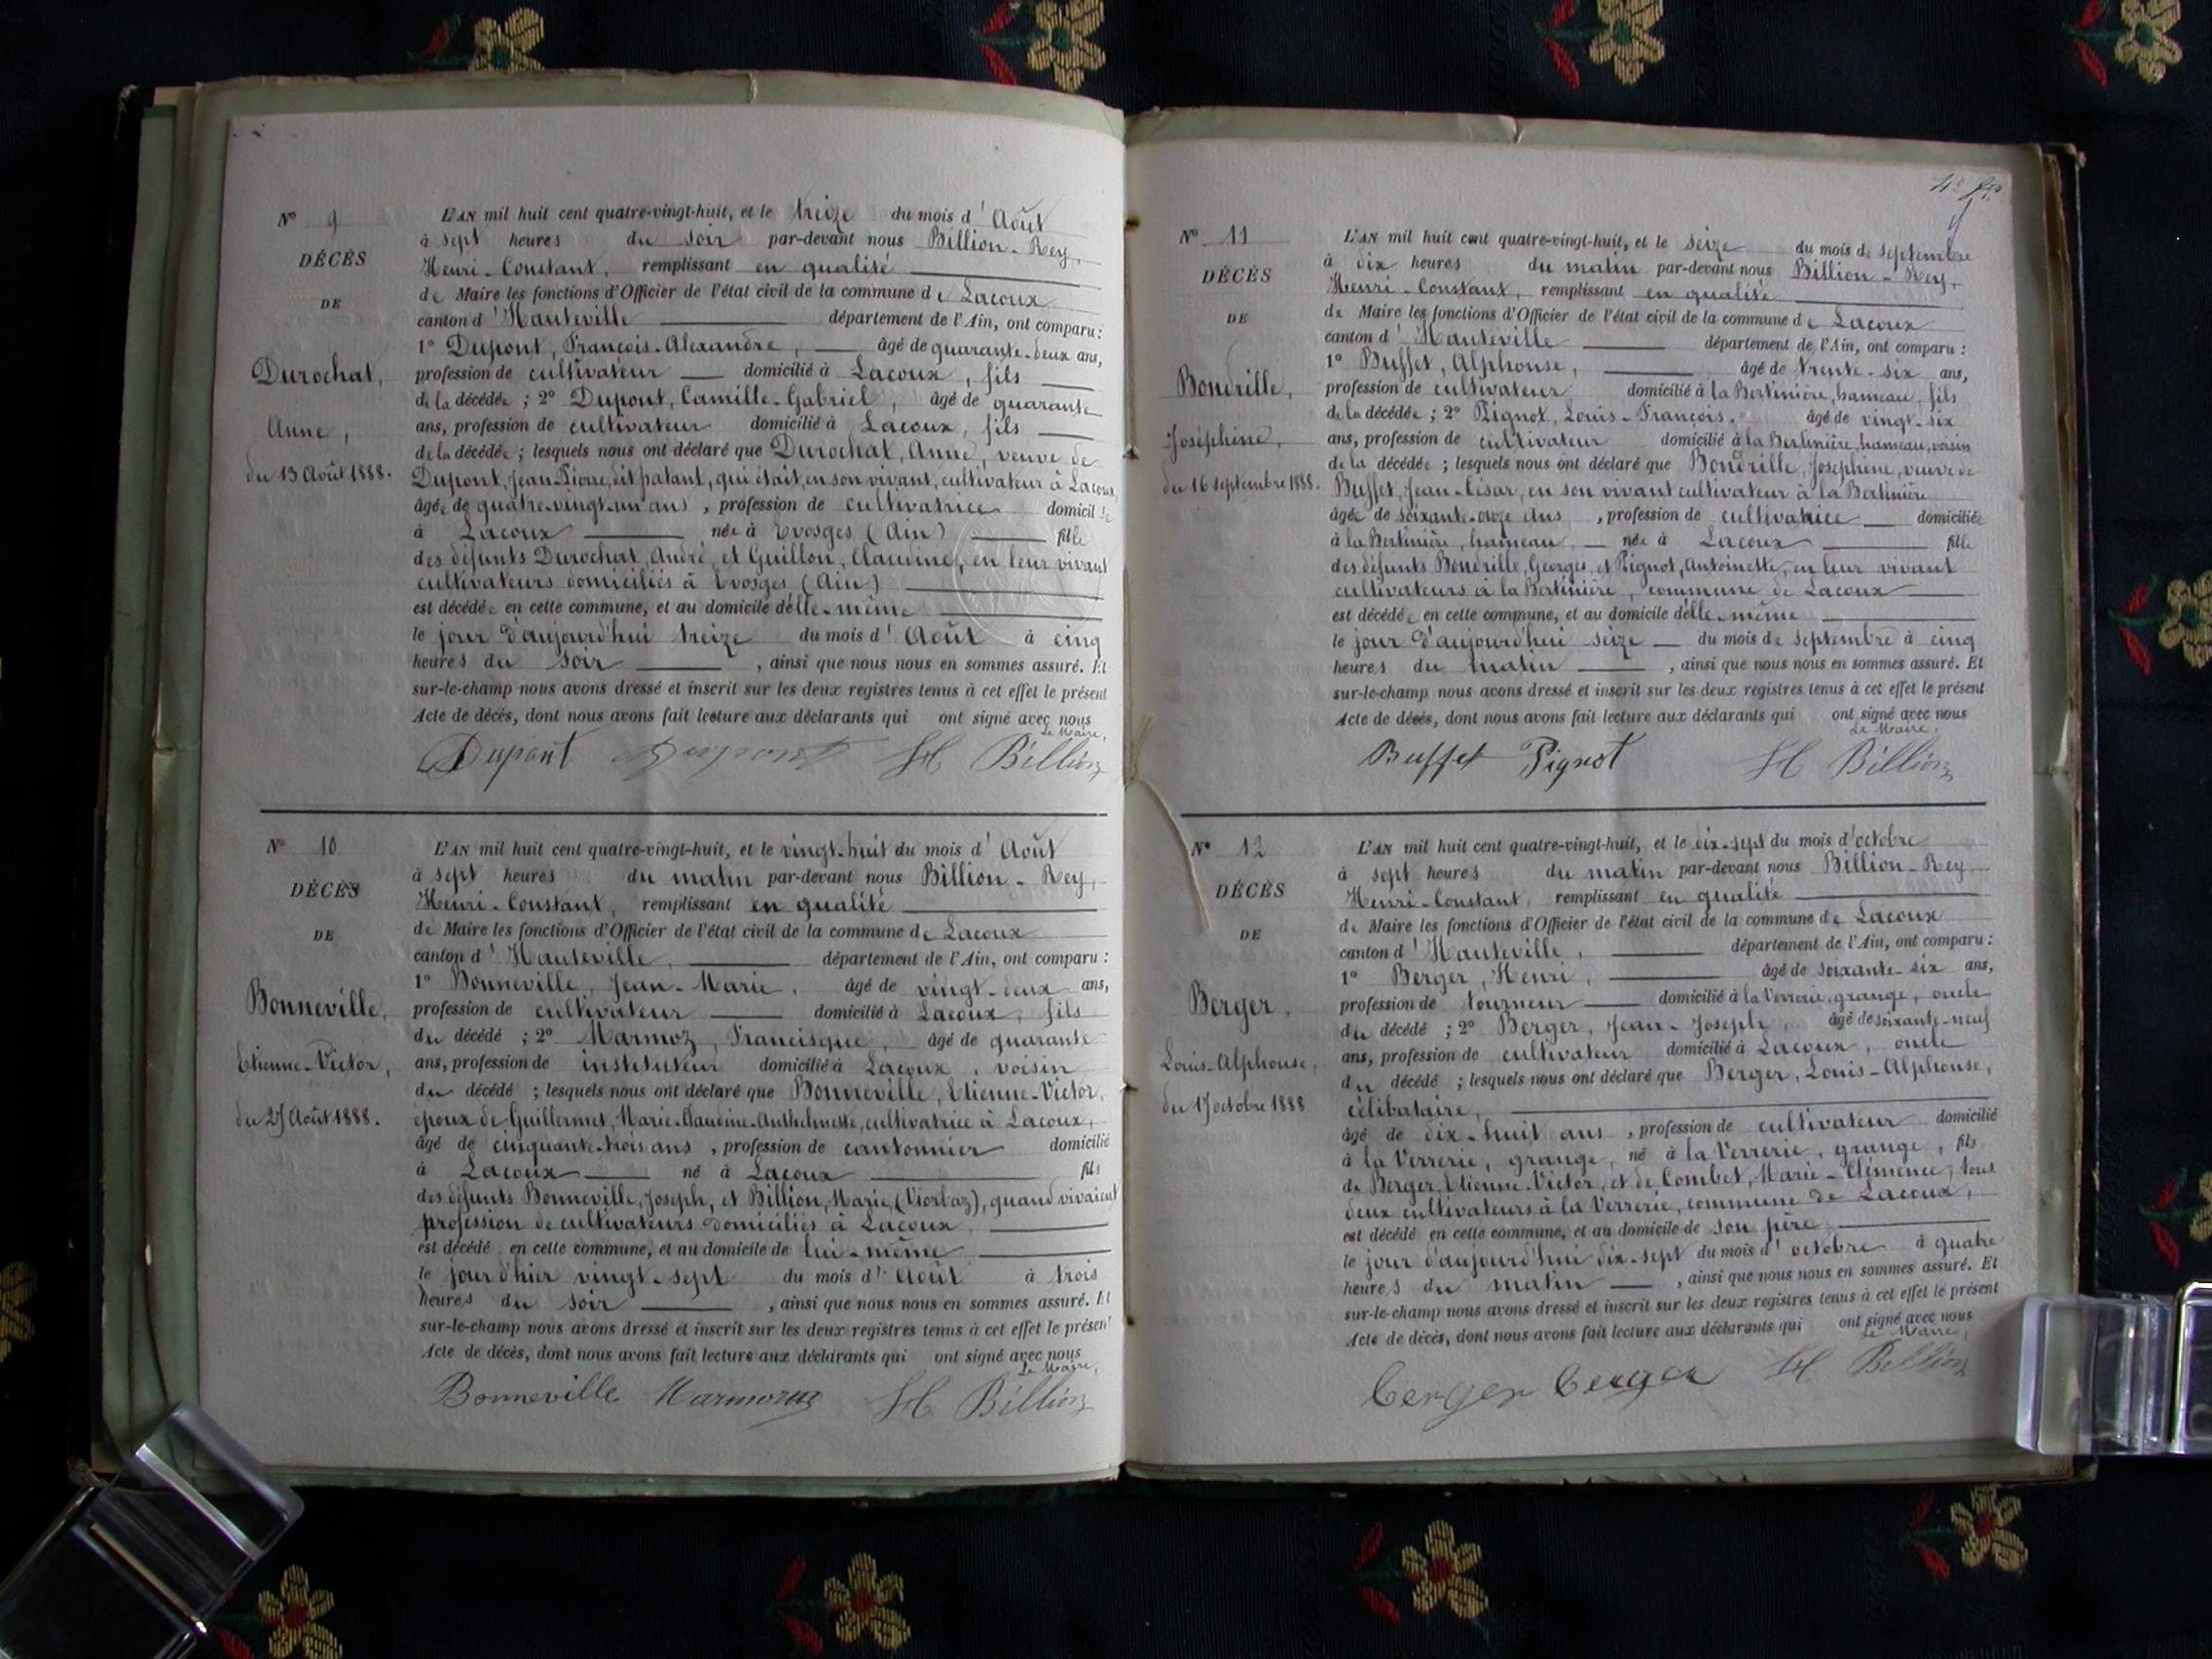 N° 9
DÉCÈS
DE
Durochat,
Anne,
du 13 Août 1888.
L'AN mil huit cent quatre-vingt-huit, et le treize du mois d'Août
à sept heures du soir par-devant nous Billion-Rey,
Henri-Constant, remplissant en qualité
de Maire les fonctions d'Officier de l'état civil de la commune de Lacoux
canton d'Hauteville département de l'Ain, ont comparu :
1° Dupont, François-Alexandre, âgé de quarante-deux ans,
profession de cultivateur domicilié à Lacoux, fils
de la décédée ; 2° Dupont, Camille-Gabriel, âgé de quarante
ans, profession de cultivateur domicilié à Lacoux, fils
de la décédée ; lesquels nous ont déclaré que Durochat, Anne, veuve de
Dupont, Jean-Pierre, dit patant, qui était, en son vivant, cultivateur à Lacoux,
âgée de quatre-vingt-un ans, profession de cultivatrice domiciliée
à Lacoux née à Evosges (Ain) fille
des défunts Durochat, André, et Guillon, Claudine, en leur vivant
cultivateurs domiciliés à Evosges (Ain)
est décédée en cette commune, et au domicile d'elle-même
le jour d'aujourd'hui treize du mois d'Août à cinq
heures du soir, ainsi que nous nous en sommes assuré. Et
sur-le-champ nous avons dressé et inscrit sur les deux registres tenus à cet effet le présent
Acte de décès, dont nous avons fait lecture aux déclarants qui ont signé avec nous
Le Maire,
Dupont Dupont H Billion
N° 10
DÉCÈS
DE
Bonneville,
Etienne-Victor,
du 27 Août 1888.
L'AN mil huit cent quatre-vingt-huit, et le vingt-huit du mois d'Août
à sept heures du matin par-devant nous Billion-Rey,
Henri-Constant, remplissant en qualité
de Maire les fonctions d'Officier de l'état civil de la commune de Lacoux
canton d'Hauteville, département de l'Ain, ont comparu :
1° Bonneville, Jean-Marie, âgé de vingt-deux ans,
profession de cultivateur domicilié à Lacoux, fils
du décédé ; 2° Marmoz, Francisque, âgé de quarante
ans, profession de instituteur domicilié à Lacoux, voisin
du décédé ; lesquels nous ont déclaré que Bonneville, Etienne-Victor,
époux de Guillermet, Marie-Claudine-Anthelmette, cultivatrice à Lacoux,
âgé de cinquante-trois ans, profession de cantonnier domicilié
à Lacoux né à Lacoux fils
des défunts Bonneville, Joseph, et Billion, Marie, (Viorlaz), quand vivaient
profession de cultivateurs domiciliés à Lacoux,
est décédé en cette commune, et au domicile de lui-même
le jour d'hier vingt-sept du mois d'Août à trois
heures du soir, ainsi que nous nous en sommes assuré. Et
sur-le-champ nous avons dressé et inscrit sur les deux registres tenus à cet effet le présent
Acte de décès, dont nous avons fait lecture aux déclarants qui ont signé avec nous
Le Maire,
Bonneville Marmoz H Billion
N° 11
DÉCÈS
DE
Bondrille,
Joséphine,
du 16 septembre 1888.
L'AN mil huit cent quatre-vingt-huit, et le seize du mois de septembre
à dix heures du matin par-devant nous Billion-Rey,
Henri-Constant, remplissant en qualité
de Maire les fonctions d'Officier de l'état civil de la commune de Lacoux
canton d'Hauteville département de l'Ain, ont comparu :
1° Buffet, Alphonse, âgé de trente-six ans,
profession de cultivateur domicilié à la Bertinière, hameau, fils
de la décédée ; 2° Pignot, Louis-François, âgé de vingt-six
ans, profession de cultivateur domicilié à la Bertinière, hameau, voisin
de la décédée ; lesquels nous ont déclaré que Bondrille, Joséphine, veuve de
Buffet, Jean-César, en son vivant cultivateur à la Bertinière
âgée de soixante-onze ans, profession de cultivatrice domiciliée
à la Bertinière, hameau, née à Lacoux fille
des défunts Bondrille, Georges, et Pignot, Antoinette, en leur vivant
cultivateurs à la Bertinière, commune de Lacoux
est décédée en cette commune, et au domicile d'elle-même
le jour d'aujourd'hui seize du mois de septembre à cinq
heures du matin, ainsi que nous nous en sommes assuré. Et
sur-le-champ nous avons dressé et inscrit sur les deux registres tenus à cet effet le présent
Acte de décès, dont nous avons fait lecture aux déclarants qui ont signé avec nous
Le Maire,
Buffet Pignot H Billion
N° 12
DÉCÈS
DE
Berger,
Louis-Alphonse,
du 17 octobre 1888
L'AN mil huit cent quatre-vingt-huit, et le dix-sept du mois d'octobre
à sept heures du matin par-devant nous Billion-Rey
Henri-Constant, remplissant en qualité
de Maire les fonctions d'Officier de l'état civil de la commune de Lacoux
canton d'Hauteville, département de l'Ain, ont comparu :
1° Berger, Henri, âgé de soixante-six ans,
profession de tourneur domicilié à la Verrerie, grange, oncle
du décédé ; 2° Berger, Jean-Joseph, âgé de soixante-neuf
ans, profession de cultivateur domicilié à Lacoux, oncle
du décédé ; lesquels nous ont déclaré que Berger, Louis-Alphonse,
célibataire,
âgé de dix-huit ans, profession de cultivateur domicilié
à la Verrerie, grange, né à la Verrerie, grange, fils
de Berger, Etienne-Victor, et de Combet, Marie-Clémence, tous
deux cultivateurs à la Verrerie, commune de Lacoux,
est décédé en cette commune, et au domicile de son père
le jour d'aujourd'hui dix-sept du mois d'octobre à quatre
heures du matin, ainsi que nous nous en sommes assuré. Et
sur-le-champ nous avons dressé et inscrit sur les deux registres tenus à cet effet le présent
Acte de décès, dont nous avons fait lecture aux déclarants qui ont signé avec nous
Le Maire,
berger berger H Billion